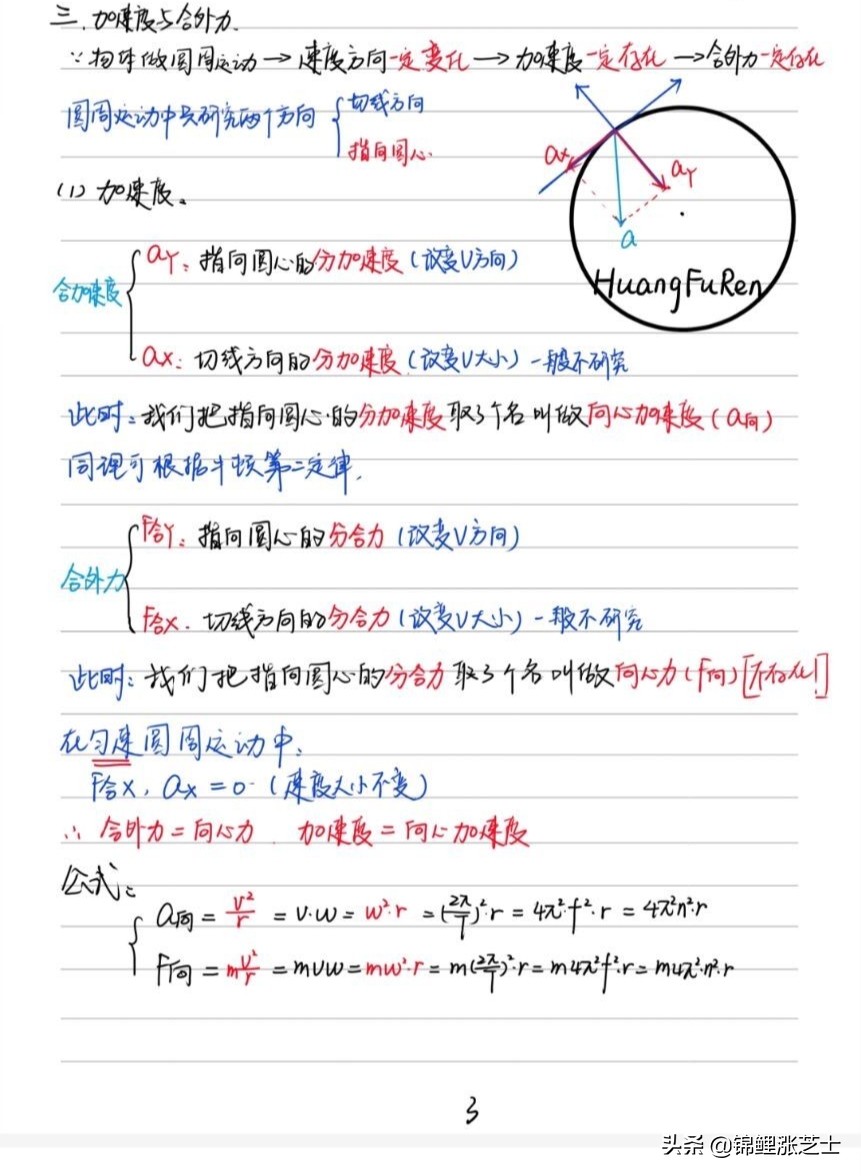 三、加速度与合外力.
∵物体做圆周运动→速度方向一定变化→加速度一定存在→合外力一定存在
圆周运动中只研究两个方向 { 切线方向
指向圆心.
ax
aγ
a
HuangFuRen
(1) 加速度。
合加速度
aγ: 指向圆心的分加速度(改变V方向)
ax: 切线方向的分加速度(改变V大小)一般不研究
此时:我们把指向圆心的分加速度取了个名叫做向心加速度(a向)
同理可根据牛顿第二定律.
合外力
F合γ: 指向圆心的分合力(改变V方向)
F合x. 切线方向的分合力(改变V大小)一般不研究
此时:我们把指向圆心的分合力取了个名叫做向心力(F向)[不存在!]
在匀速圆周运动中:
F合x, ax=0.(速度大小不变)
∴ 合外力=向心力. 加速度=向心加速度
公式:
a向 = v²/r = v·w = w²·r = (2π/T)²·r = 4π²·f²·r = 4π²n²·r
F向 = m v²/r = mvw = mw²·r = m(2π/T)²·r = m4π²f²·r = m4π²·n²·r
3
头条 @锦鲤涨芝士